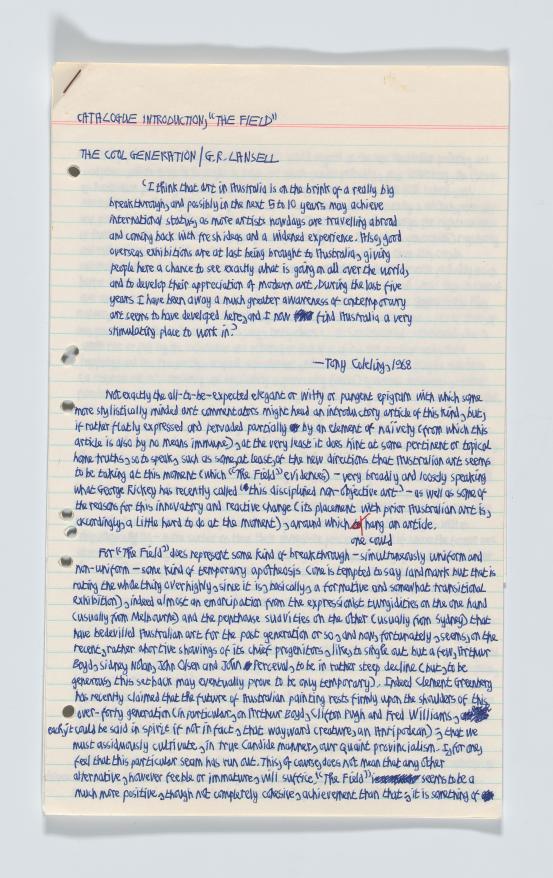 CATALOGUE INTRODUCTION, "THE FIELD"
THE COOL GENERATION / G.R. LANSELL
"I think that art in Australia is on the brink of a really big
breakthrough, and possibly in the next 5 to 10 years may achieve
international status, as more artists nowdays are travelling abroad
and coming back with fresh ideas and a widened experience. Also, good
overseas exhibitions are at last being brought to Australia, giving
people here a chance to see exactly what is going on all over the world,
and to develop their appreciation of modern art. During the last five
years I have been away a much greater awareness of contemporary
art seems to have developed here, and I now find Australia a very
stimulating place to work in."
— Tony Coleing, 1968
Not exactly the all-to-be-expected elegant or witty or pungent epigram with which some
more stylistically minded art commentators might head an introductory article of this kind, but,
if rather flatly expressed and pervaded partially by an element of naivety (from which this
article is also by no means immune), at the very least it does hint at some pertinent or topical
home truths, so to speak, such as some, at least, of the new directions that Australian art seems
to be taking at this moment (which "The Field" evidences) – very broadly and loosely speaking
what George Rickey has recently called "this disciplined non-objective art" – as well as some of
the reason for this innovatory and reactive change (its placement with prior Australian art is,
accordingly, a little hard to do at the moment), around which hang an article.
one could
For "The Field" does represent some kind of breakthrough – simultaneously uniform and
non-uniform – some kind of temporary apotheosis (one is tempted to say landmark but that is
rating the whole thing over highly, since it is, basically, a formative and somewhat transitional
exhibition), indeed almost an emancipation from the expressionist turgidities on the one hand
(usually from Melbourne) and the penthouse suavities on the other (usually from Sydney) that
have bedevilled Australian art for the past generation or so, and now, fortunately, seems, on the
recent, rather abortive showings of its chief progenitors, likes to single out but a few, Arthur
Boyd, Sidney Nolan, John Olsen and John Perceval, to be in rather steep decline (but, to be
generous, this setback may eventually prove to be only temporary). Indeed Clement Greenberg
has recently claimed that the future of Australian painting rests firmly upon the shoulders of this
over-forty generation (in particular, on Arthur Boyd, Clifton Pugh and Fred Williams,
each, it could be said in spirit if not in fact, that wayward creature, an Antipodean); that we
must assiduously cultivate, in true Candide manner, our quaint provincialism. I, for one,
feel that this particular seam has run out. This, of course, does not mean that any other
alternative, however feeble or immature, will suffice. "The Field" seems to be a
much more positive, though not completely cohesive, achievement than that; it is something of